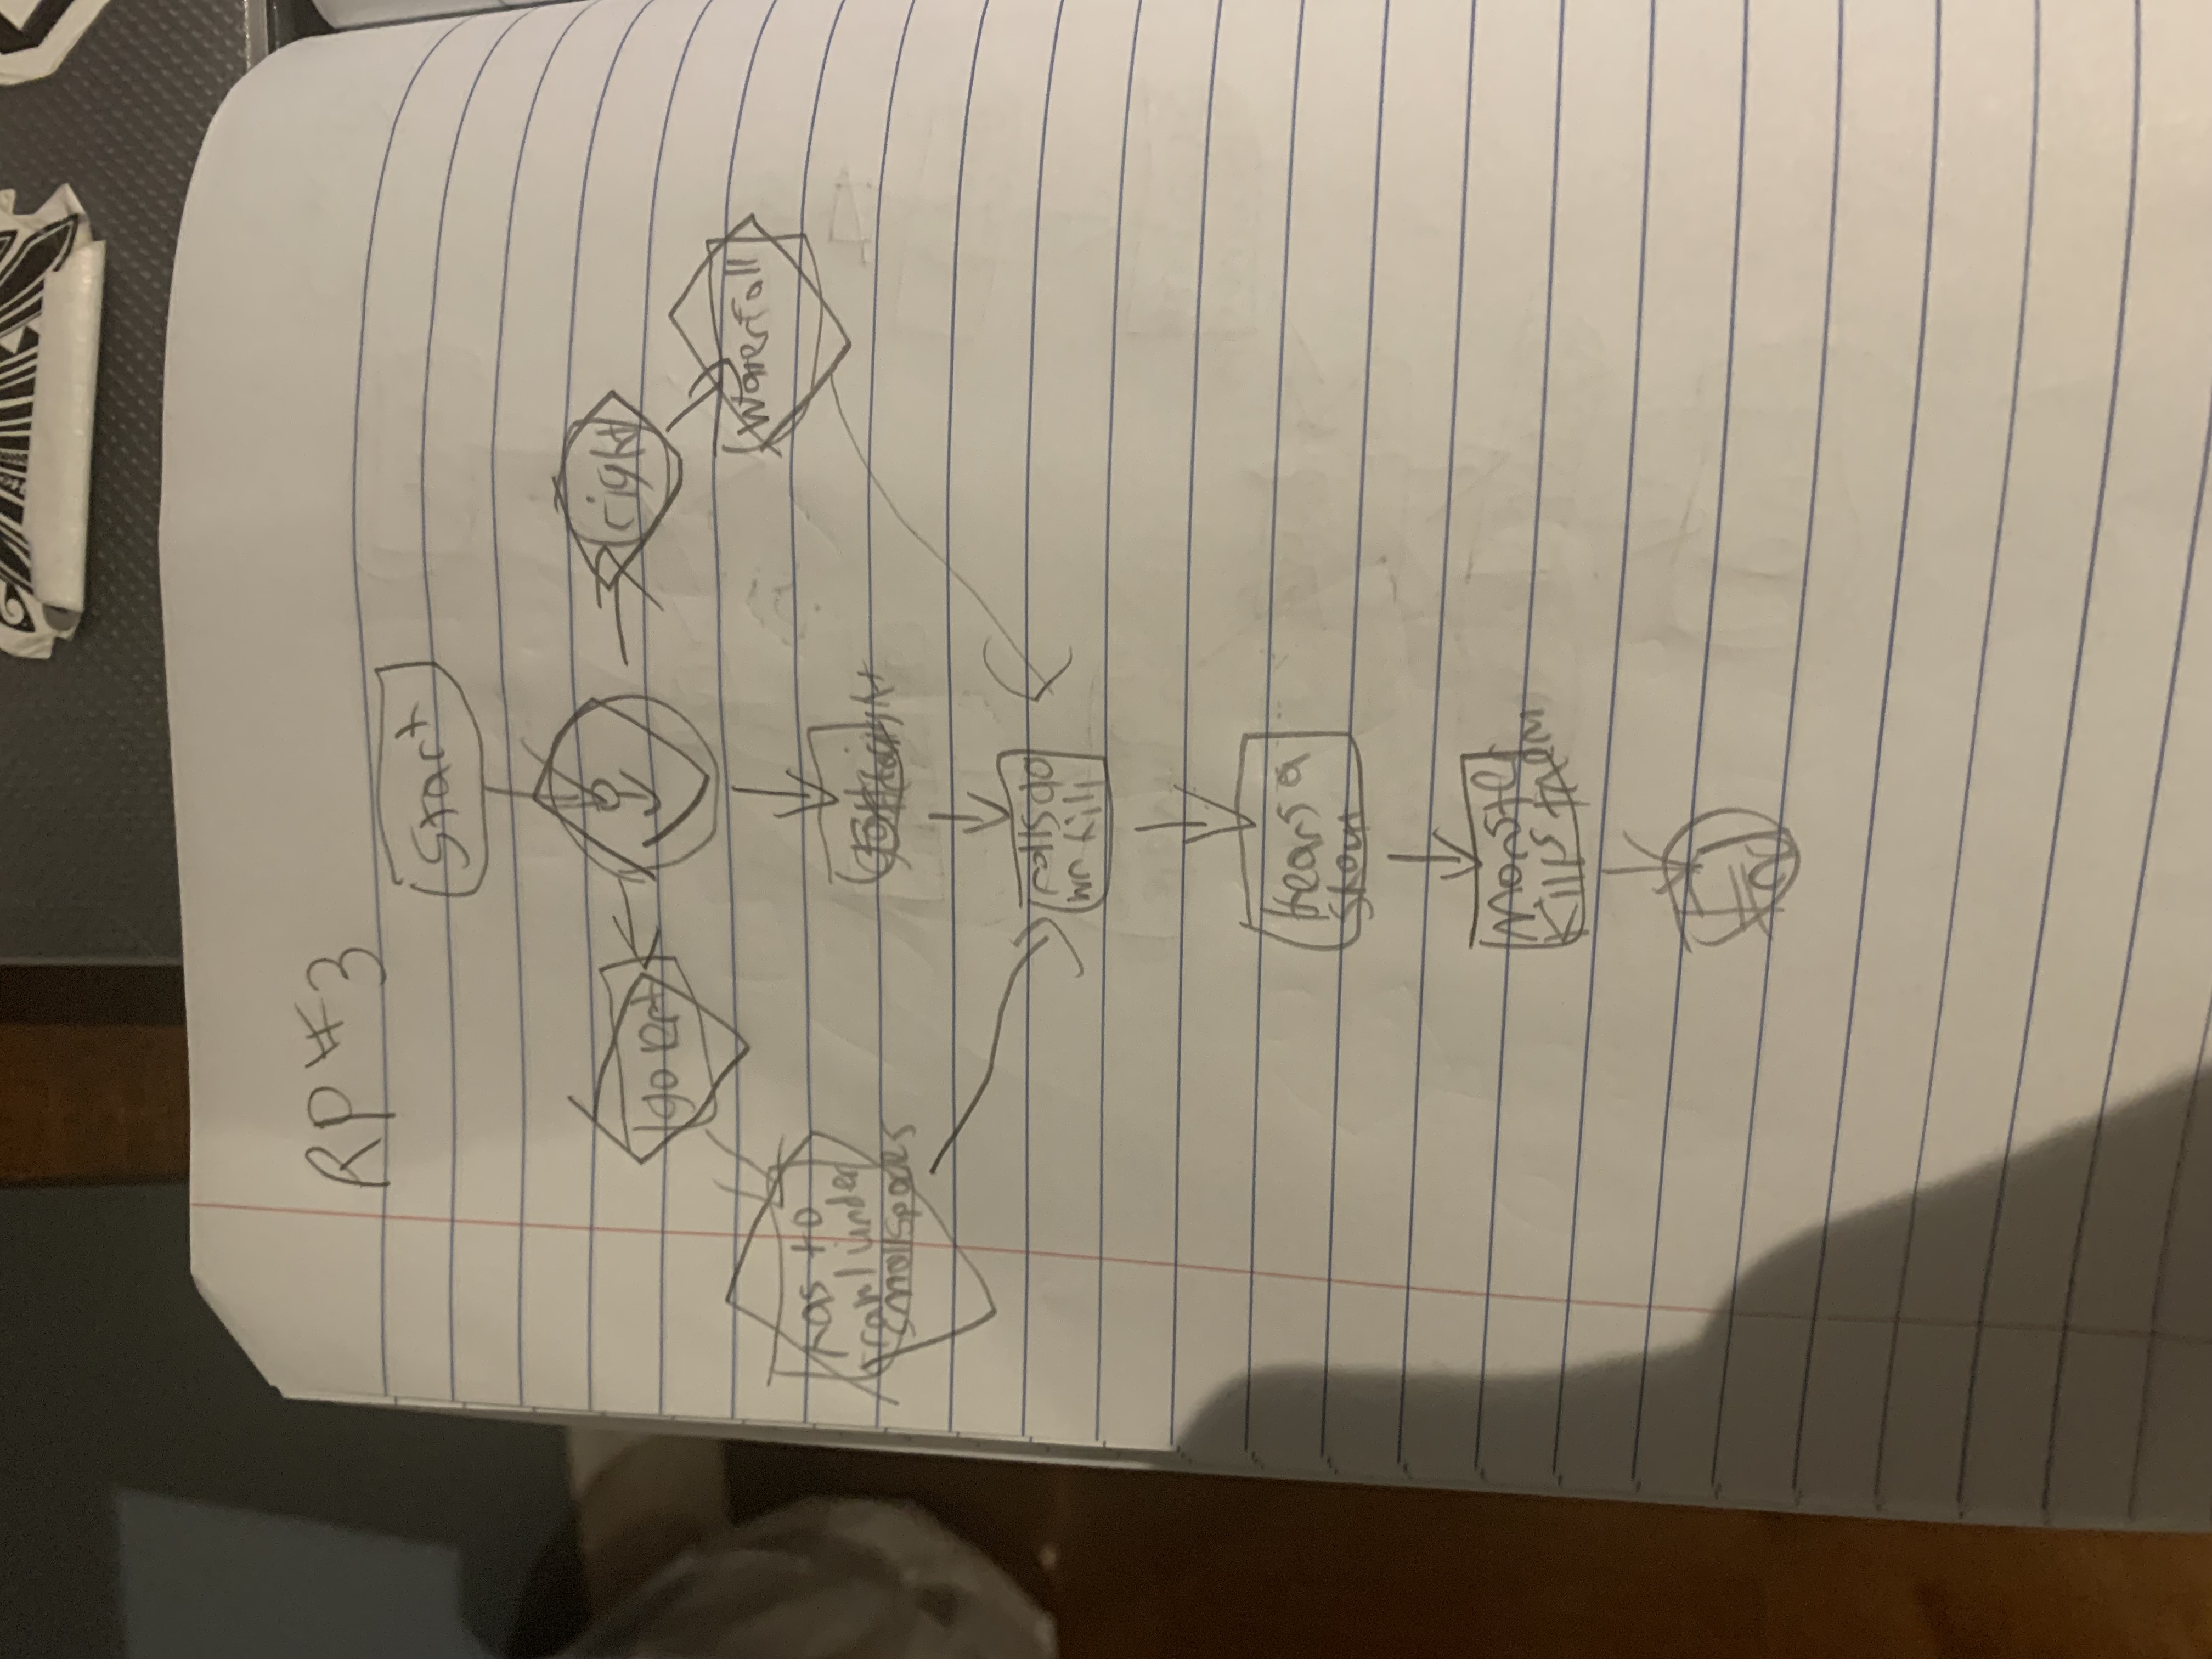 RP #3
Start
go left
right
Waterfall
has to
crawl under
small spaces
rolls do
wn hill
Hears a
Monster
kills them
End